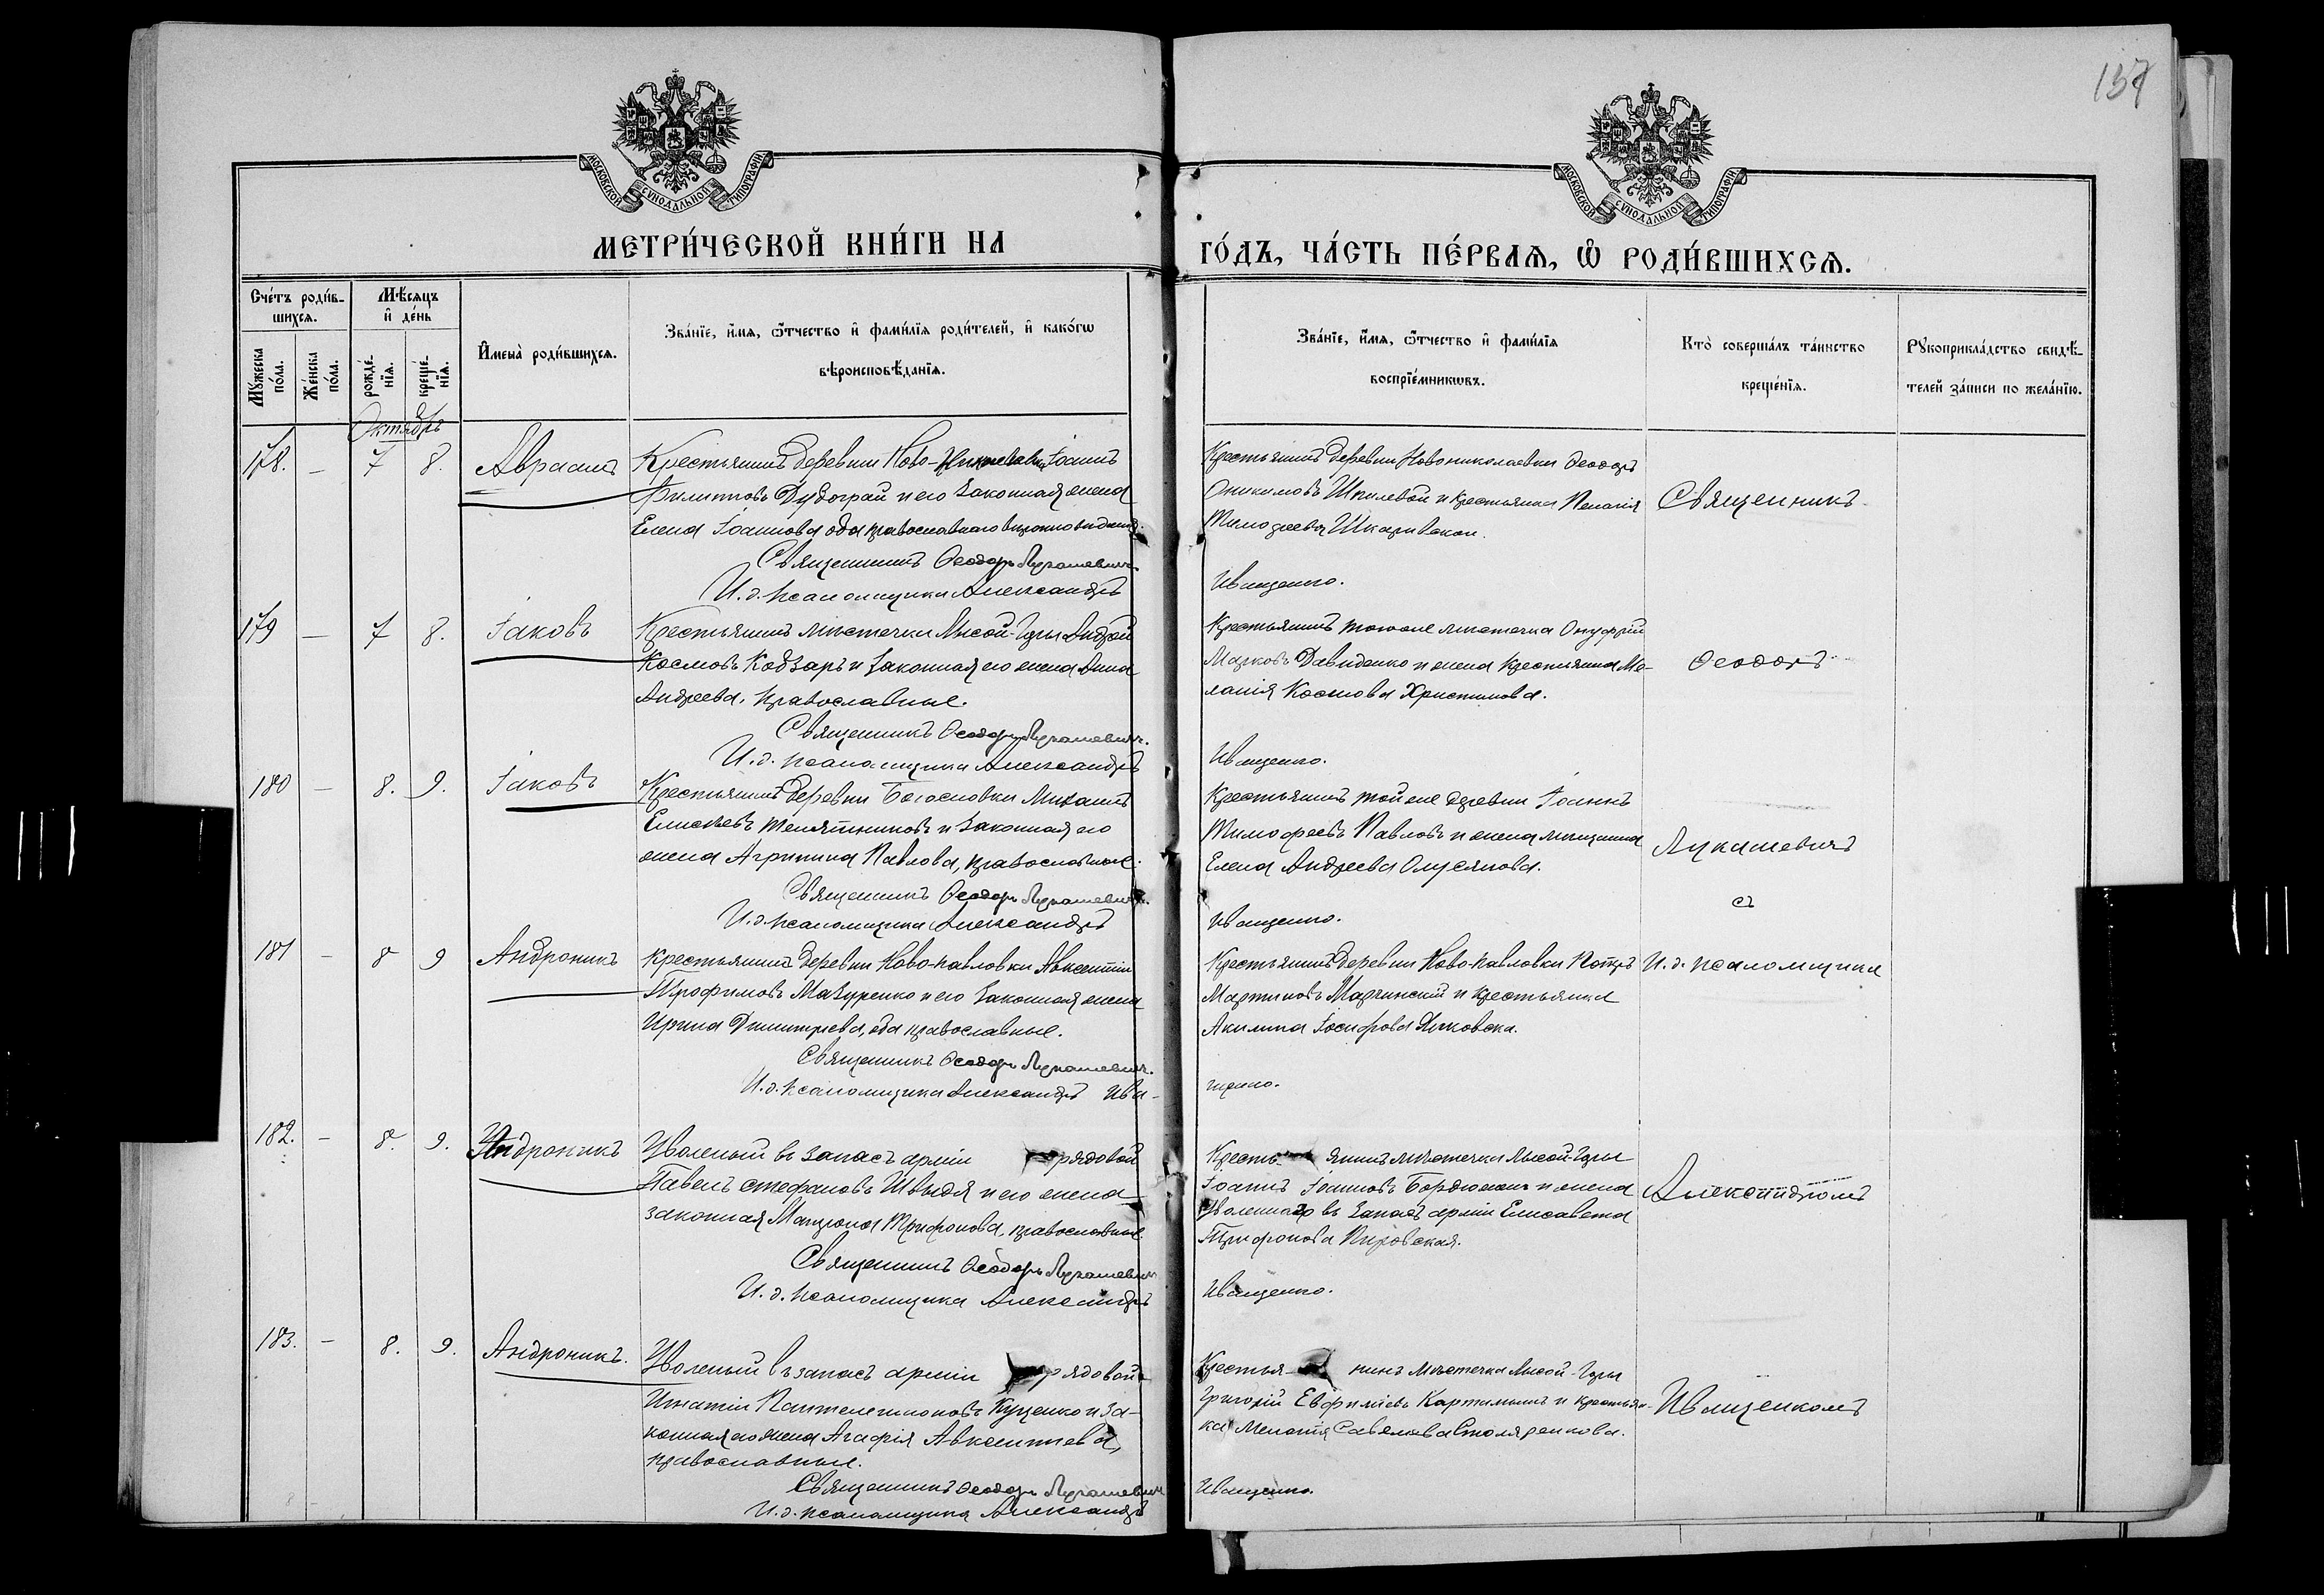 137
МОСКОВСКОЙ СѴНОДАЛЬНОЙ ТИПОГРАФІИ
МОСКОВСКОЙ СѴНОДАЛЬНОЙ ТИПОГРАФІИ
МЕТРИ́ЧЕСКОЙ КНИ́ГИ НА
ГО́ДЪ, ЧА́СТЬ ПЕ́РВАѦ, Ѡ РОДИ́ВШИХСѦ.
Сче́тъ роди́в-
шихсѧ.
Мѣ́сѧцъ
и де́нь
Мꙋ́жеска
по́ла.
Же́нска
по́ла.
рожде́-
нїѧ.
креще́-
нїѧ.
Имена̀ роди́вшихсѧ.
Зва́нїе, и́мѧ, ѻ҆́тчество и фами́лїѧ роди́телей, и како́гѡ
вѣроисповѣ́данїѧ.
Зва́нїе, и́мѧ, ѻ҆́тчество и фами́лїѧ
воспрїе́мникѡвъ.
Кто̀ соверша́лъ та́инство
креще́нїѧ.
Рꙋкоприкла́дство свидѣ́-
телей за́писи по жела́нїю.
Октябрь
178. – 7 8. Авраамъ
Крестьянинъ деревни Ново-Николаевки Іоаннъ
Филипповъ Дудограй и его законная жена
Елена Іоаннова оба православнаго вѣроисповѣданія.
Священникъ Ѳеодоръ Лукашевичъ.
И. д. псаломщика Александръ
Крестьянинъ деревни Новониколаевки Ѳеодоръ
Оникимовъ Шпилевой и крестьянка Пелагія
Тимоѳеева
Иващенко.
Священникъ
179 – 7 8. Іаковъ
Крестьянинъ мѣстечка Лысой-Горы Андрей
Космовъ Кобзарь и законная его жена Анна
Андреева, православные.
Священникъ Ѳеодоръ Лукашевичъ.
И. д. псаломщика Александръ
Крестьянинъ тогоже мѣстечка Онуфрій
Марковъ Давиденко и жена крестьянина Ме-
ланія Космова Христинова.
Иващенко.
Ѳеодоръ
180 – 8. 9. Іаковъ
Крестьянинъ деревни Богословки Михаилъ
Елисѣевъ Телятниковъ и законная его
жена Агрипина Павлова, православные.
Священникъ Ѳеодоръ Лукашевичъ.
И. д. псаломщика Александръ
Крестьянинъ той же деревни Іоаннъ
Тимофеевъ Павловъ и жена мѣщанина
Елена Андреева
Иващенко.
Лукашевичъ
съ
181 – 8 9 Андроникъ
Крестьянинъ деревни Ново-Павловки Авксентій
Трофимовъ Мазуренко и его законная жена
Ирина Димитріева, оба православные.
Священникъ Ѳеодоръ Лукашевичъ.
И. д. псаломщика Александръ Ива-
Крестьянинъ деревни Ново-Павловки Петръ
Мартиновъ Марчинскій и крестьянка
Акилина Іосифова
щенко.
И. д. псаломщика
182. – 8. 9. Андроникъ
Уволеный въ запасъ арміи рядовой
Павелъ Стефановъ Швыдя и его жена
законная Матрона Трифонова, православные.
Священникъ Ѳеодоръ Лукашевичъ
И. д. псаломщика Александръ
Кресть- янинъ мѣстечка Лысой-Горы
Іоаннъ Іоанновъ и жена
Уволеннаго въ запасъ арміи Елисавета
Трифонова Пировская.
Иващенко.
Александромъ
183. – 8. 9. Андроникъ.
Уволеный въ запасъ арміи рядовой
Игнатій Пантелеимоновъ Куценко и за-
конная его жена Агафія Авксентіева,
православные.
Священникъ Ѳеодоръ Лукашевичъ
И. д. псаломщика Александръ
Крестья- нинъ мѣстечка Лысой-Горы
Григорій Евфиміевъ и крестьян-
ка Меланія Савелова Столяренкова.
Иващенко.
Иващенкомъ